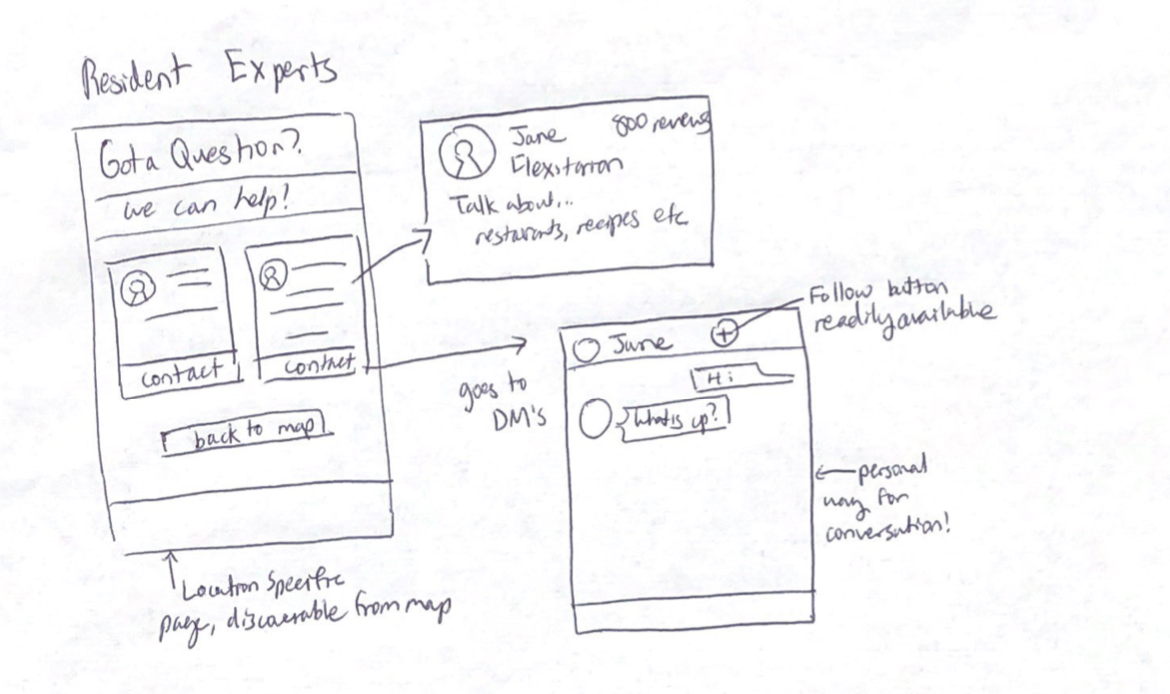 Resident Experts
Got a Question?
we can help!
contact
contact
back to map
Location Specific
page, discoverable from map
Jane
800 reviews
Flexitarian
Talk about...
restaurants, recipes etc
goes to
DM's
Jane
Hi
What is up?
Follow button
readily available
personal
way for
conversation!